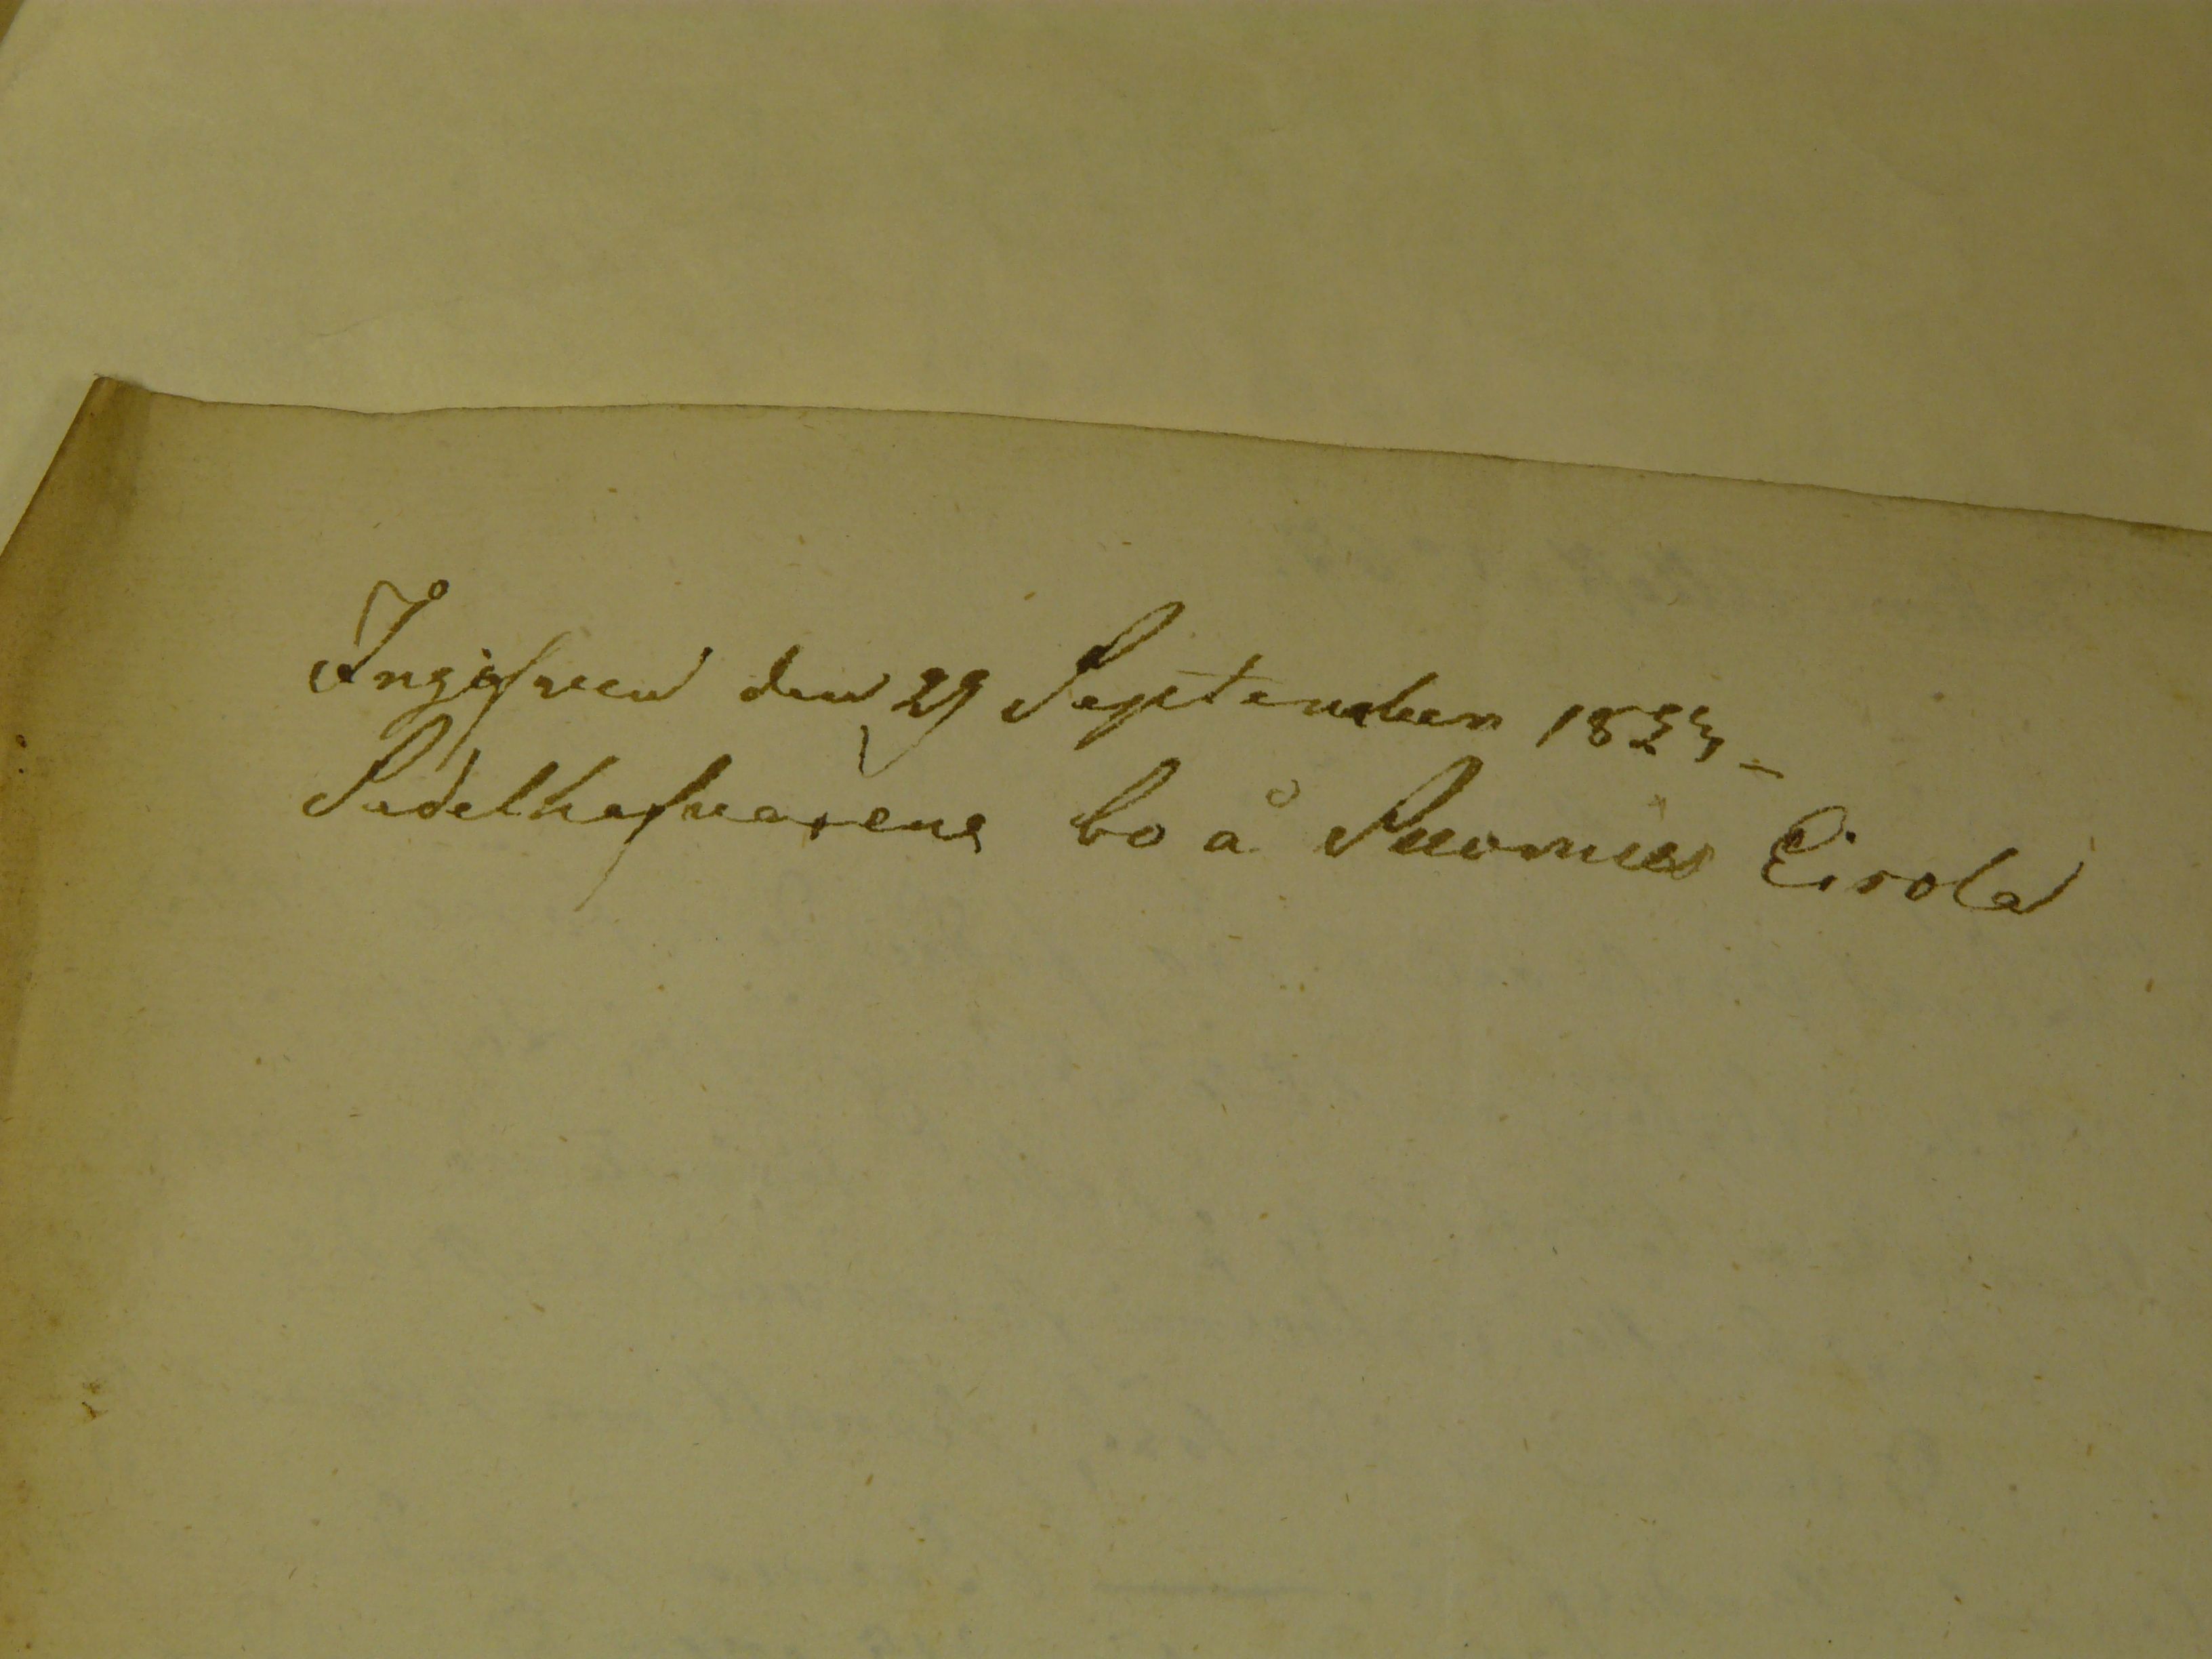 Ingifven den 29 September 1823 –
Sidelhafvarens bo å Suomis Eirola